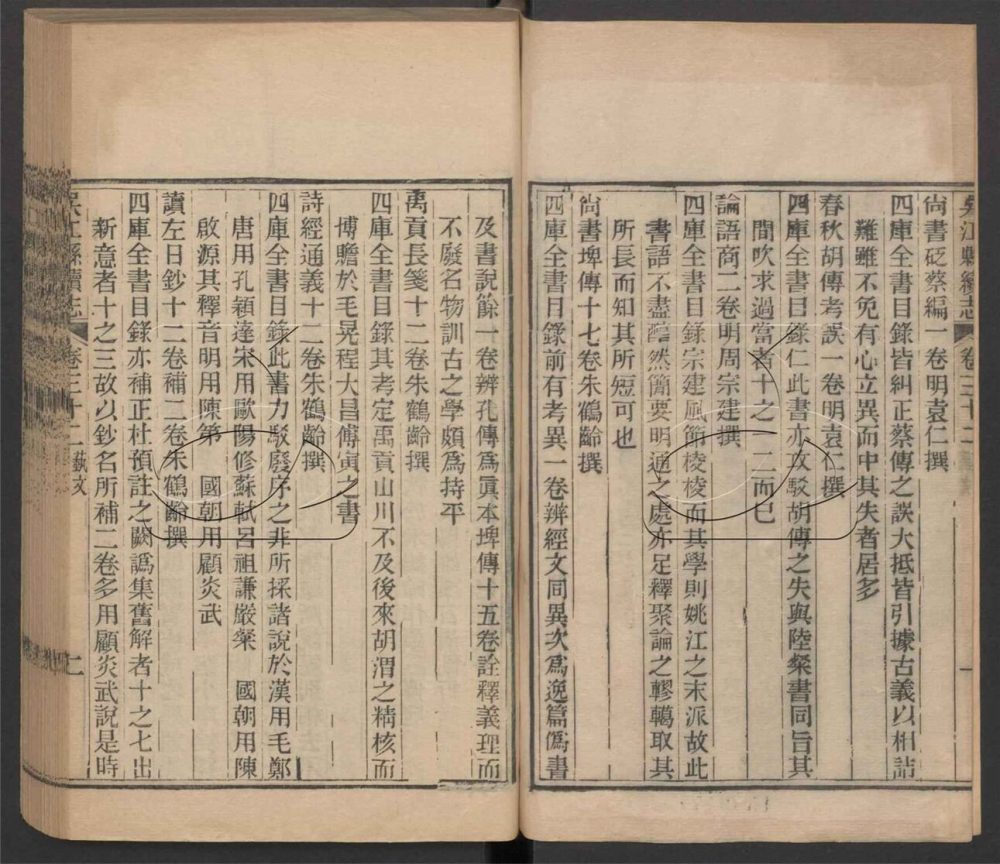 吳江縣續志 卷三十二 一
尙書砭蔡編一卷明袁仁撰
四庫全書目錄皆糾正蔡傳之誤大抵皆引據古義以相詰
難雖不免有心立異而中其失者居多
春秋胡傳考誤一卷明袁仁撰
四庫全書目錄仁此書亦攻駁胡傳之失與陸粲書同旨其
間吹求過當者十之一二而已
論語商二卷明周宗建撰
四庫全書目錄宗建風節棱棱而其學則姚江之末派故此
書語不盡醕然簡要明通之處亦足釋聚論之轇轕取其
所長而知其所短可也
尙書埤傳十七卷朱鶴齡撰
四庫全書目錄前有考異一卷辨經文同異次爲逸篇僞書
及書說餘一卷辨孔傳爲眞本埤傳十五卷詮釋義理而
不廢名物訓古之學頗爲持平
禹貢長箋十二卷朱鶴齡撰
四庫全書目錄其考定禹貢山川不及後來胡渭之精核而
博瞻於毛晃程大昌傅寅之書
詩經通義十二卷朱鶴齡撰
四庫全書目錄此書力駁廢序之非所採諸說於漢用毛鄭
唐用孔穎達宋用歐陽修蘇軾呂祖謙嚴粲 國朝用陳
啟源其釋音明用陳第 國朝用顧炎武
讀左日鈔十二卷補二卷朱鶴齡撰
四庫全書目錄亦補正杜預註之闕譌集舊解者十之七出
新意者十之三故以鈔名所補二卷多用顧炎武說是時
吳江縣續志 卷三十二 藝文 二